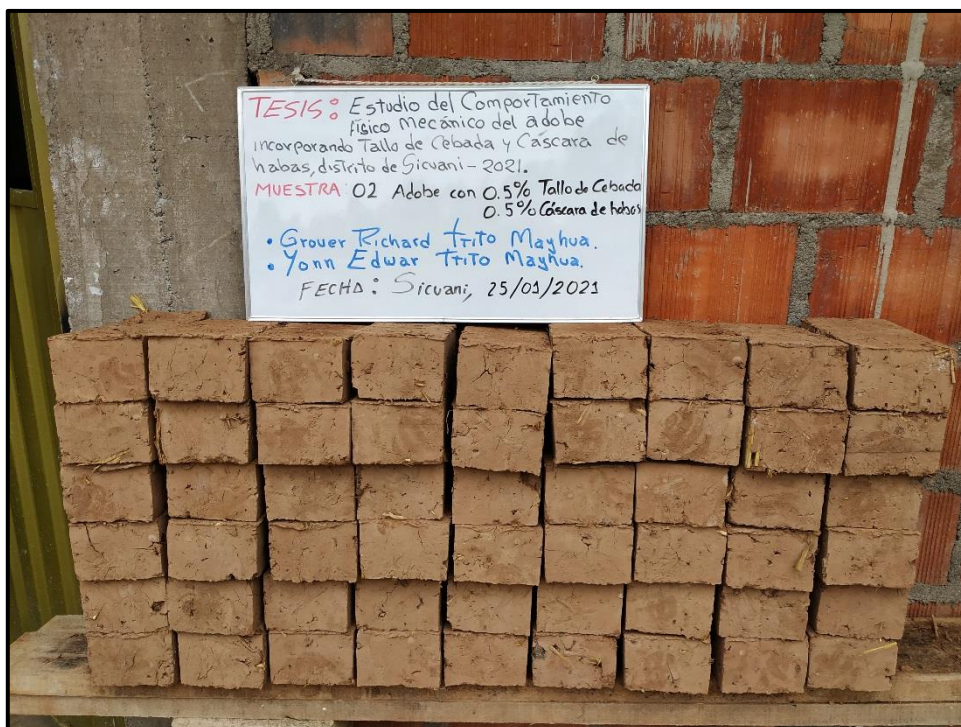 TESIS: Estudio del Comportamiento
Físico Mecánico del adobe
incorporando Tallo de Cebada y Cáscara de
habas, distrito de Sicuani - 2021.
MUESTRA: 02 Adobe con 0.5% Tallo de Cebada
0.5% Cáscara de habas
• Grover Richard Ttito Mayhua.
• Yonn Edwar Ttito Mayhua.
FECHA: Sicuani, 25/01/2021